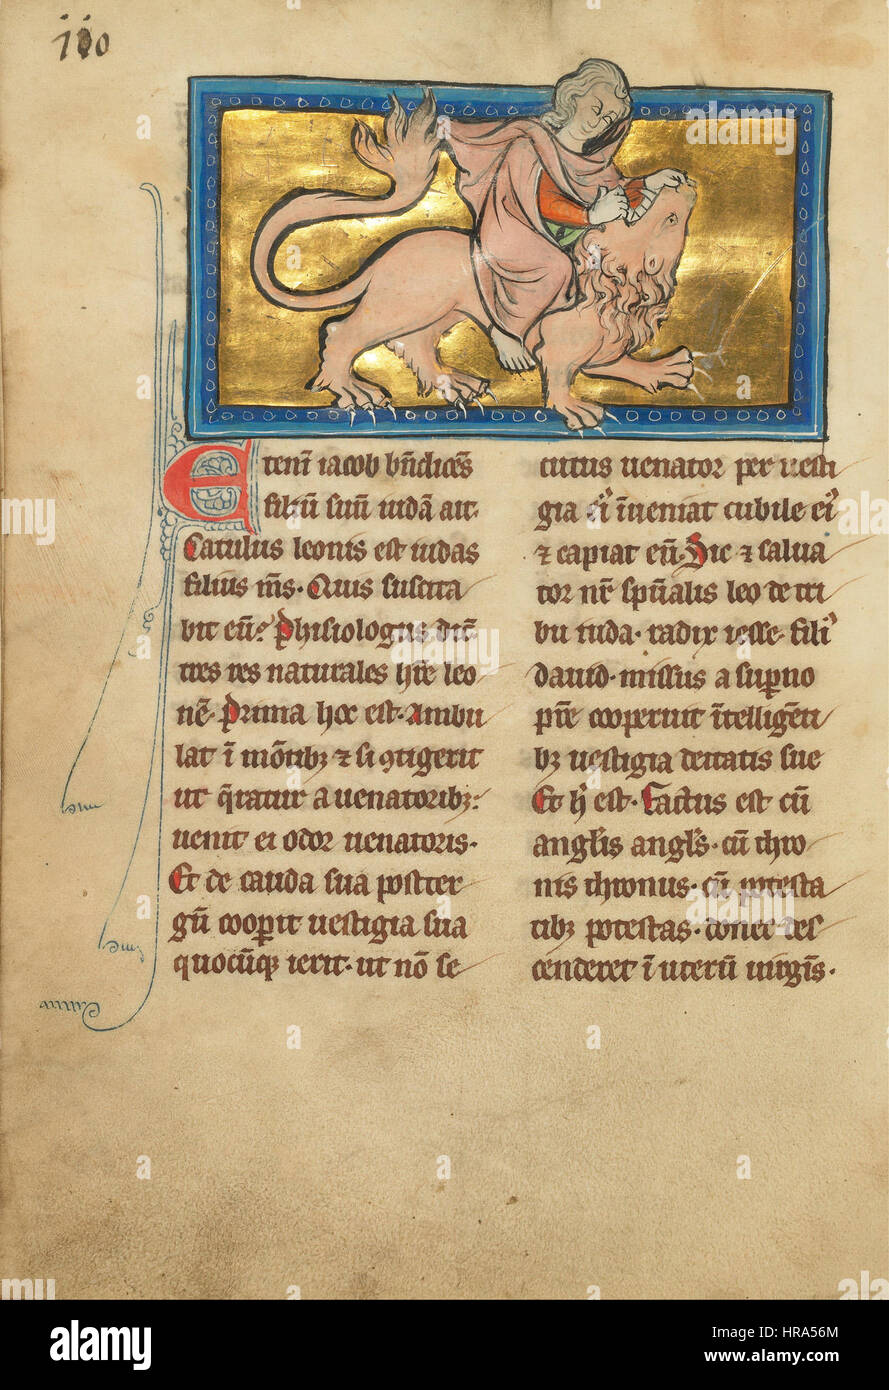 110
Eteni iacob bndices
filiu suu iuda ait.
Catulus leonis est iudas
filius ms. Quis suscita
bit eu? Phisiologus dic
tres res naturales hre leo
ne. Prima hec est. Ambu
lat i motibz ⁊ si ꝯtigerit
ut qratur a uenatoribz:
uenit ei odor uenatoris.
Et de cauda sua postter
gu coopit uestigia sua
quocuqz ierit. ut no se
cutus uenator per uesti
gia ei' iueniat cubile ei'
⁊ capiat eu. Sic ⁊ salua
tor nr spualis leo de tri
bu iuda. radix iesse. fili'
dauid. missus a supno
pre cooperuit itelligeti
bz uestigia deitatis sue
Et h est. Factus est cu
anglis angls. cu thro
nis thronus. cu potesta
tibz potestas. donec des
cenderet i uteru uirgis.
a alamy
alamy
Image ID: HRA56M
www.alamy.com